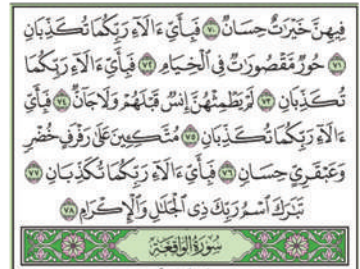 فِيهِنَّ خَيْرَٰتٌ حِسَانٌ ٧٠ فَبِأَيِّ ءَالَآءِ رَبِّكُمَا تُكَذِّبَانِ
٧١ حُورٌ مَّقْصُورَٰتٌ فِي ٱلْخِيَامِ ٧٢ فَبِأَيِّ ءَالَآءِ رَبِّكُمَا
تُكَذِّبَانِ ٧٣ لَمْ يَطْمِثْهُنَّ إِنسٌ قَبْلَهُمْ وَلَا جَآنٌّ ٧٤ فَبِأَيِّ
ءَالَآءِ رَبِّكُمَا تُكَذِّبَانِ ٧٥ مُتَّكِـِٔينَ عَلَىٰ رَفْرَفٍ خُضْرٍ
وَعَبْقَرِيٍّ حِسَانٍ ٧٦ فَبِأَيِّ ءَالَآءِ رَبِّكُمَا تُكَذِّبَانِ ٧٧
تَبَٰرَكَ ٱسْمُ رَبِّكَ ذِي ٱلْجَلَٰلِ وَٱلْإِكْرَامِ ٧٨
سُورَةُ الوَاقِعَةِ